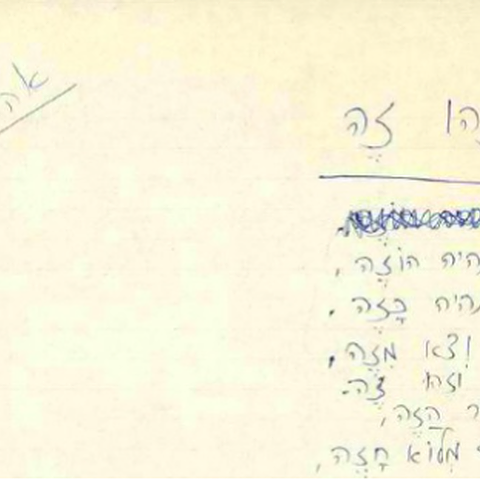 הו זֶה
היה הוֹזֶה,
היה כָּזֶה,
וצא מִזֶּה,
וְזֶהוּ זֶה.
הַזֶּה,
מְלוֹא חָזֶה,